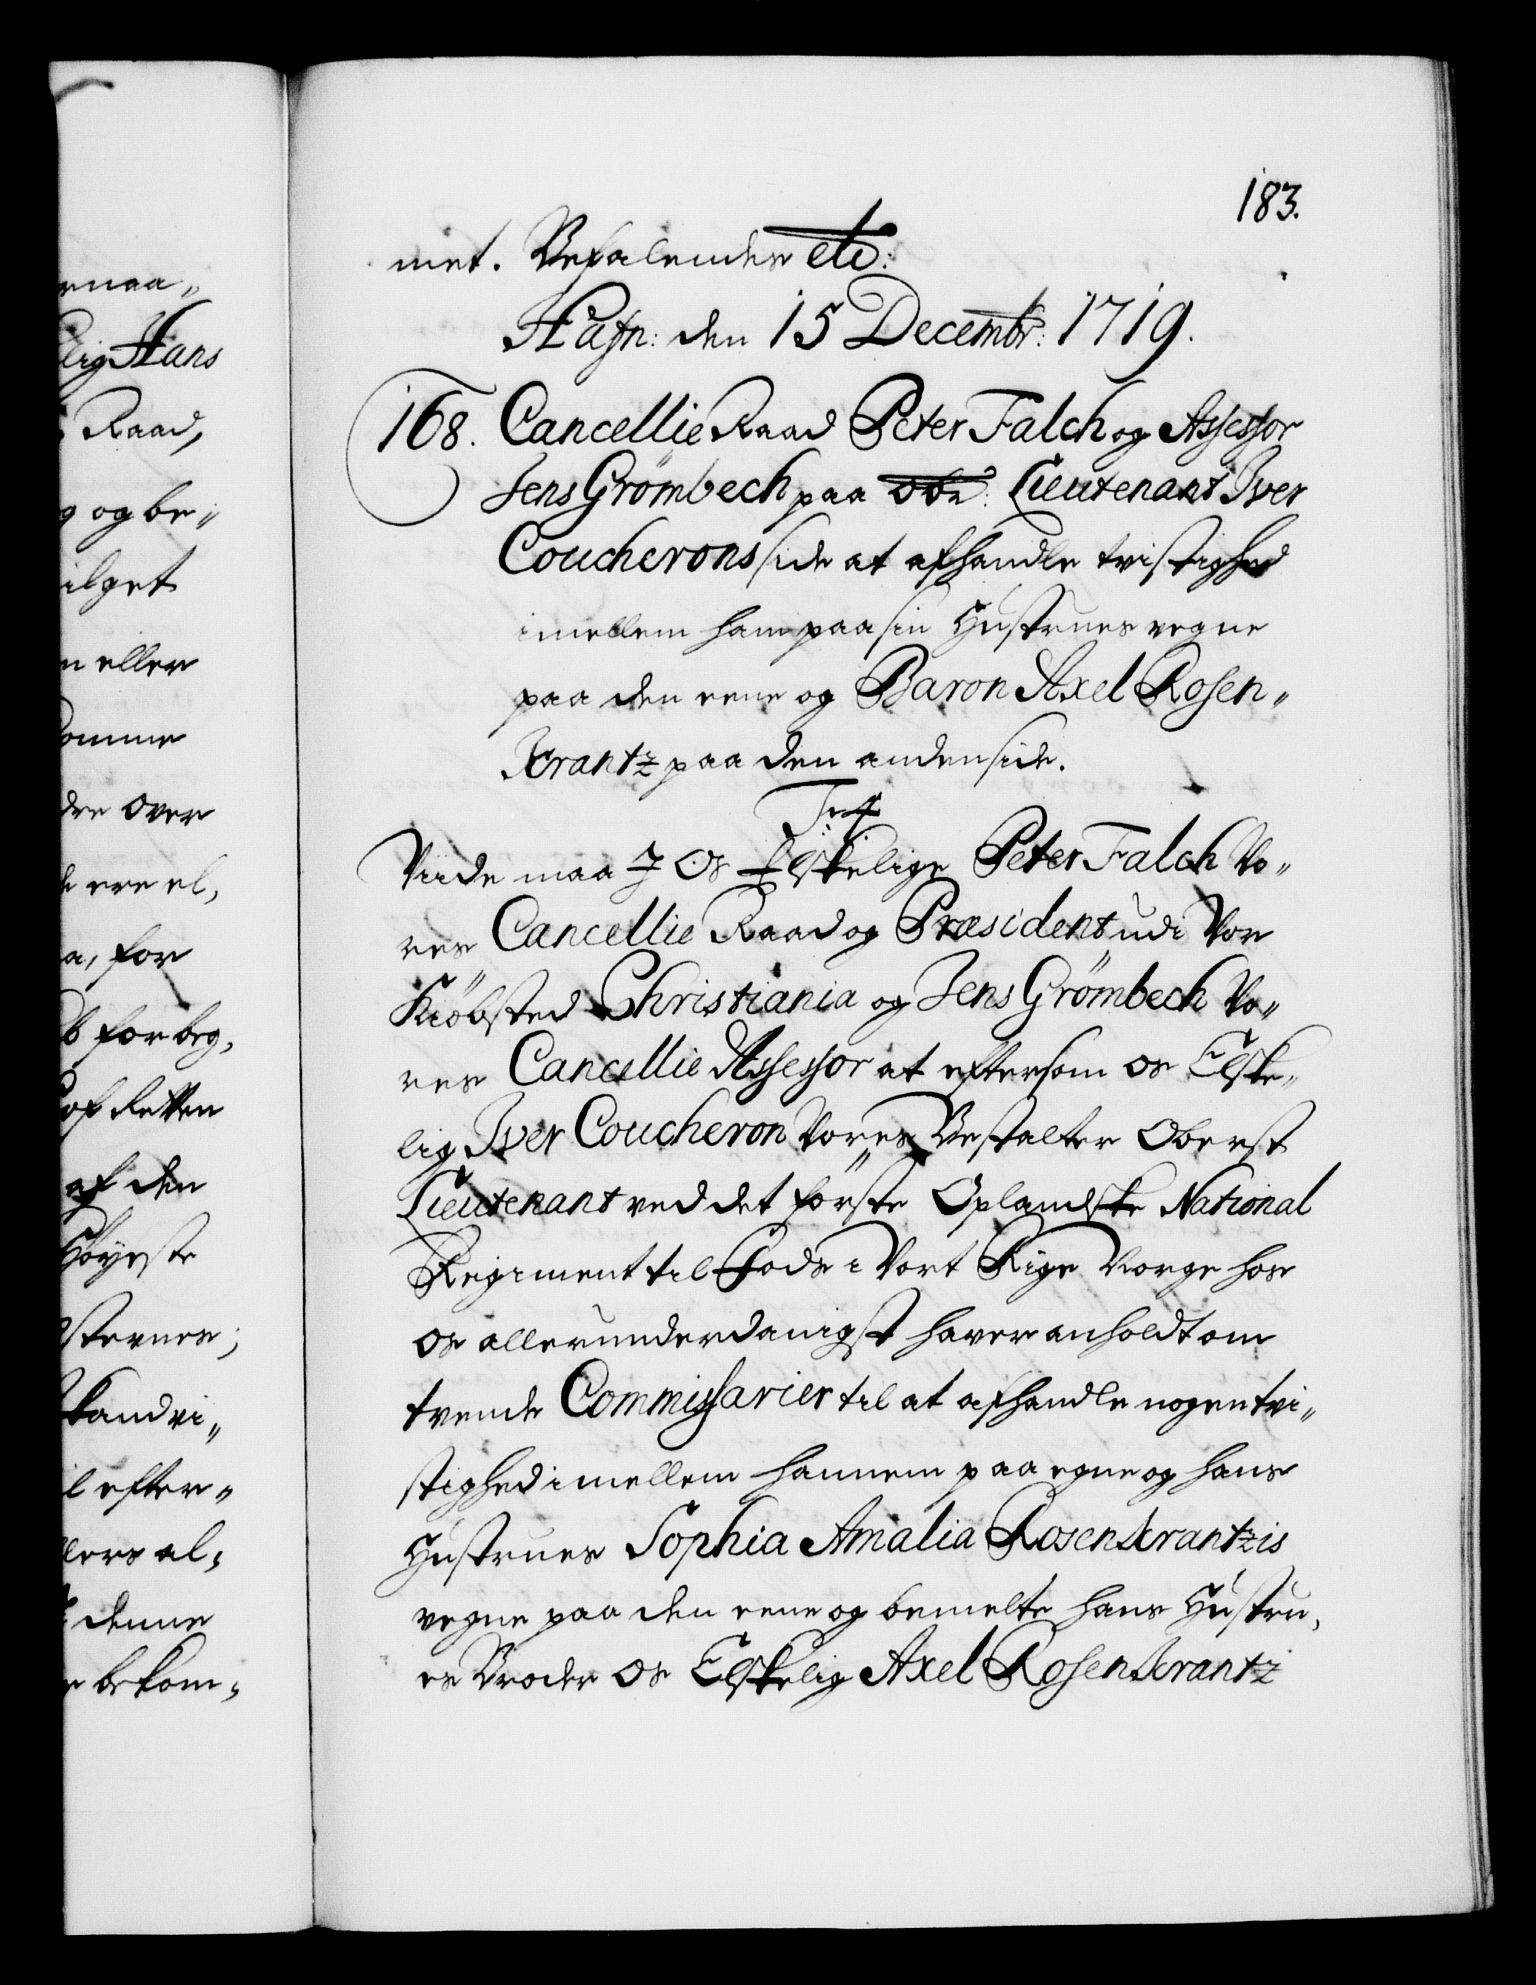 183.
met. Befalendes etc:
Hafn: den 15 Decembr: 1719.
168. Cancellie Raad Peter Falch og Assessor
Jens Grömbech paa Obr: Lieutenant Iver
Coucherons side at afhandle tvistighed
imellem ham paa sin Hustrues vegne
paa den eene og Baron Axel Rosen„
Krantz paa den anden side.
F:4
Viide maa I Os Elskelige Peter Falch Vo„
res Cancellie Raad og Præsident udi Vor
Kiöbsted Christiania og Jens Grömbech Vo„
res Cancellie Assessor at eftersom os Elske„
lig Iver Coucheron Vores Bestalter Oberst
Lieutenant ved det förste Oplandske National
Regiment til Fods i Vort Rige Norge hos
os allerunderdanigst haver anholdt om
tvende Commissarier til at afhandle nogen tvi„
stighed imellem hannem paa egne og hans
Hustrues Sophia Amalia Rosenkrantzis
vegne paa den eene og bemelte hans Hustru„
es Broder Os Elskelig Axel Rosenkrantz
ernaa„
lig Hans
Raad,
g og be„
ilget
n eller
komme
dre over
ere el„
a, for
forbeg„
of Retten
af den
Höyeste
sternes;
kand vi„
il efter„
llers al„
denne
bekom„